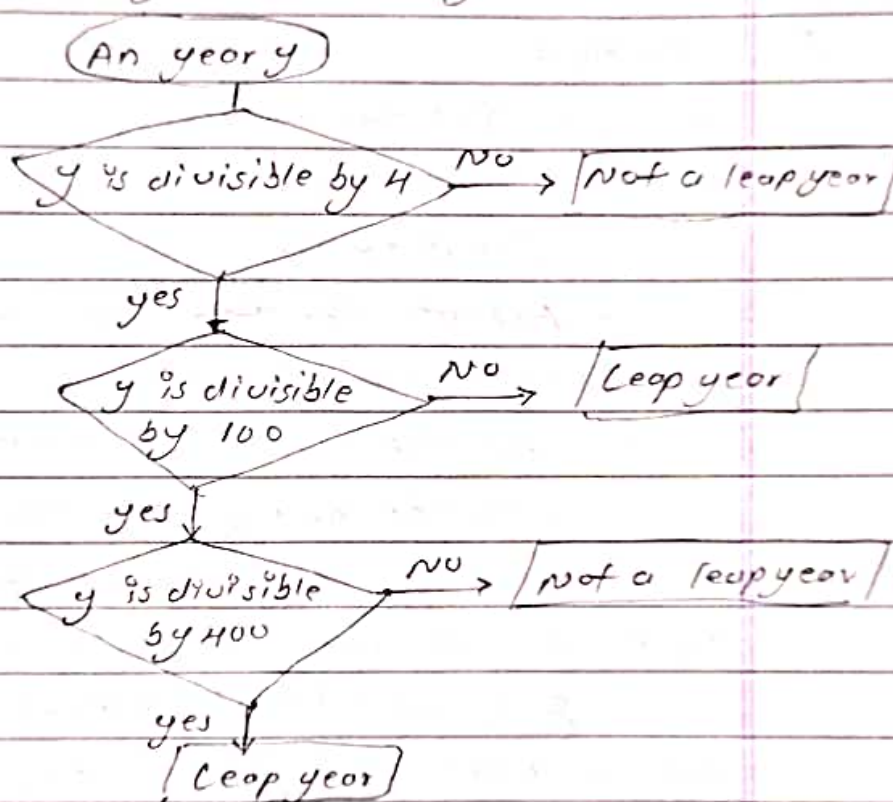 An year y
y is divisible by 4
No
Not a leap year
yes
y is divisible
by 100
No
Leap year
yes
y is divisible
by 400
No
Not a leap year
yes
Leap year